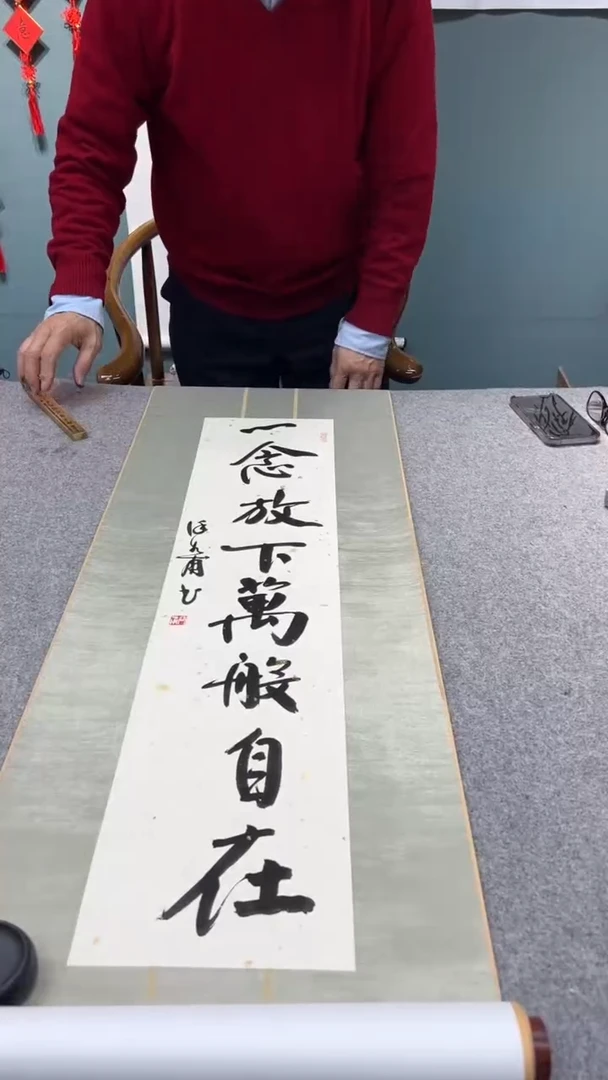 一念放下萬般自在